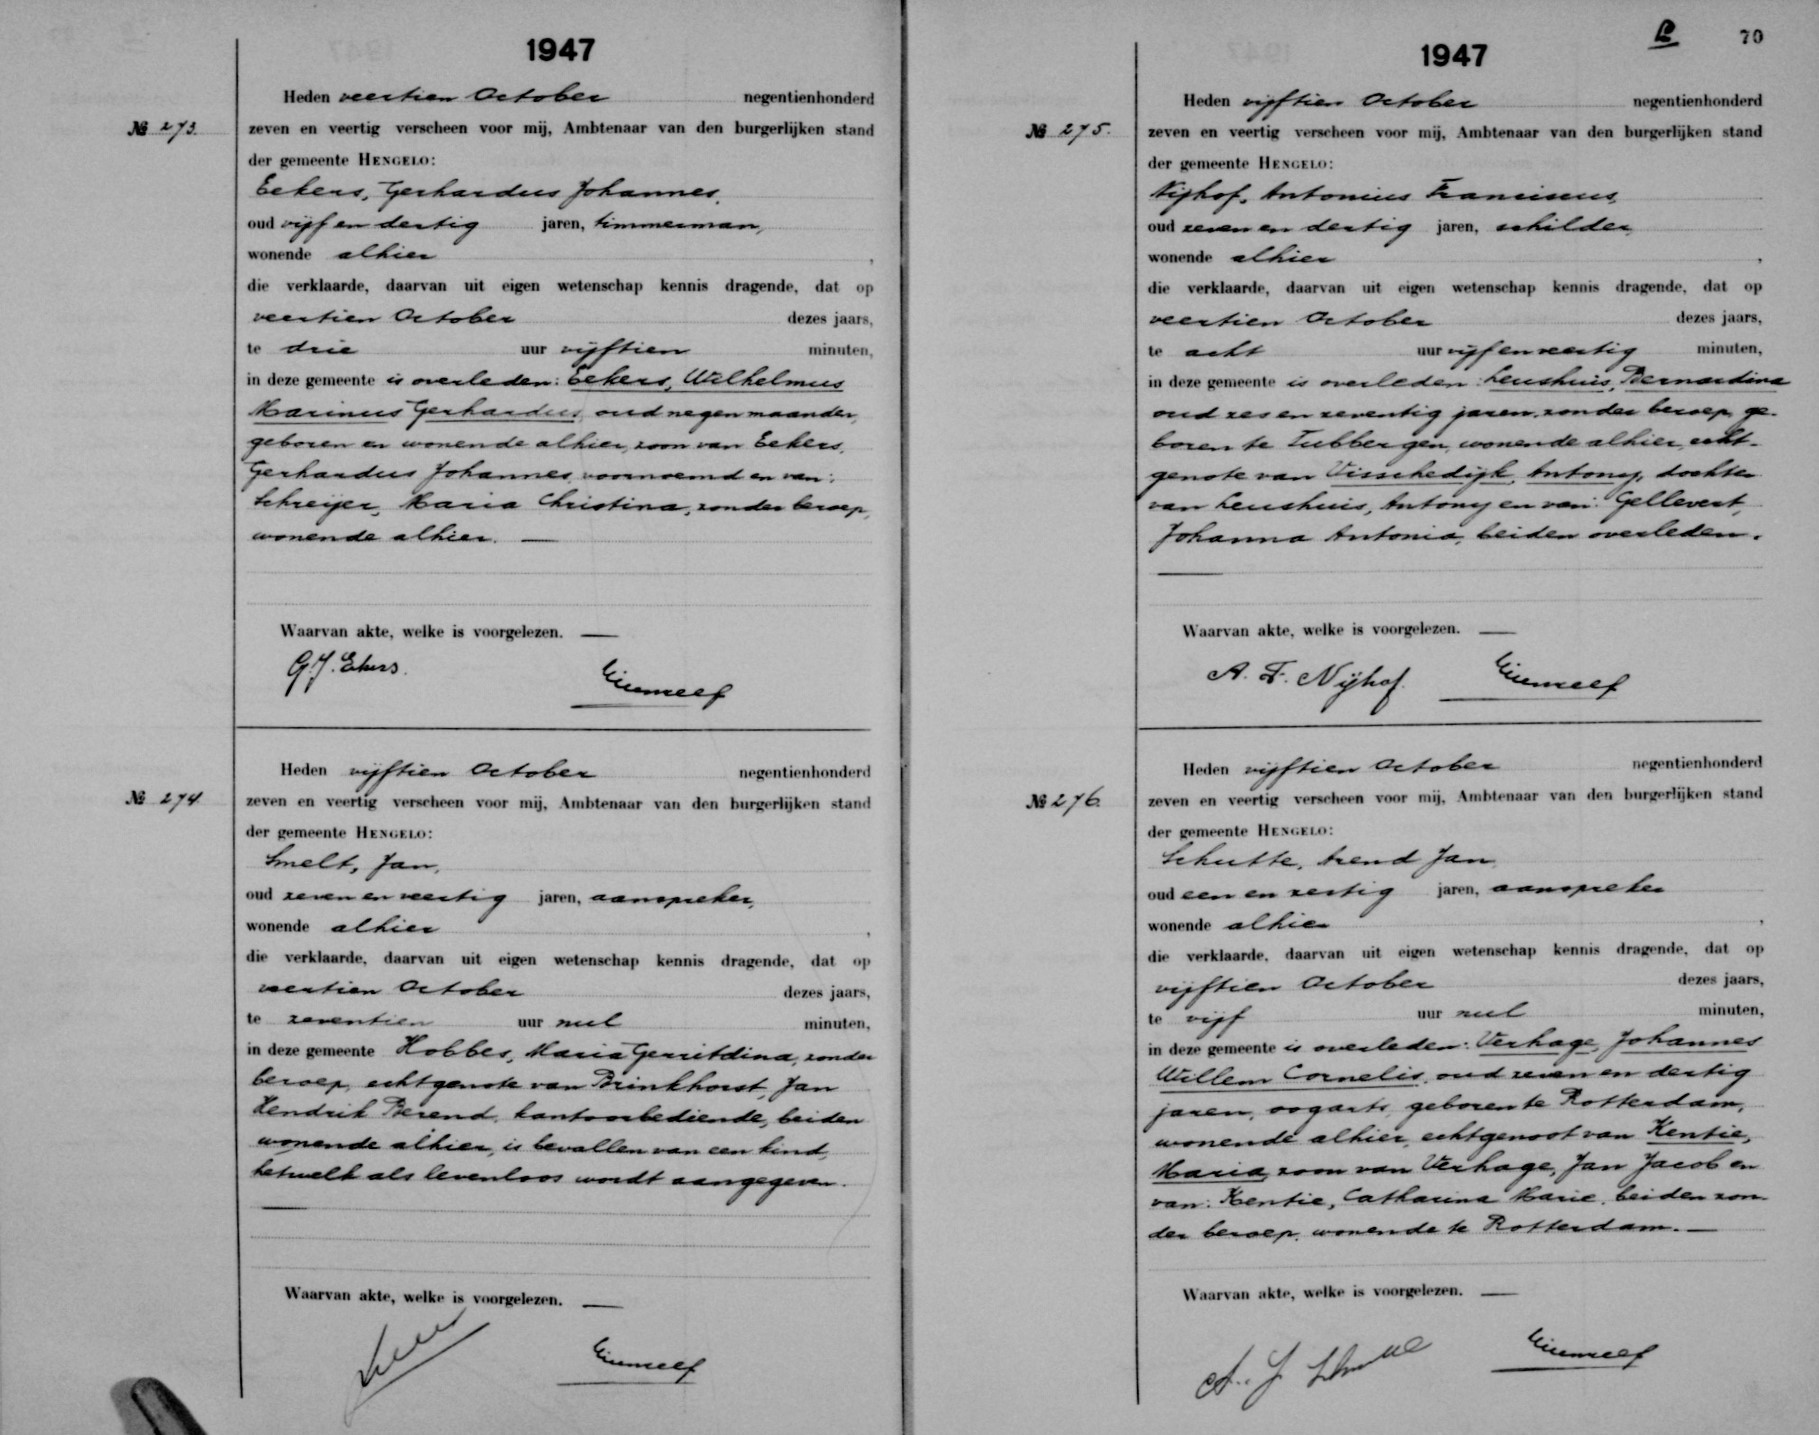 1947
Heden veertien October negentienhonderd
№ 273. zeven en veertig verscheen voor mij, Ambtenaar van den burgerlijken stand
der gemeente HENGELO:
Eekers, Gerhardus Johannes,
oud vijf en dertig jaren, timmerman,
wonende alhier ,
die verklaarde, daarvan uit eigen wetenschap kennis dragende, dat op
veertien October dezes jaars,
te drie uur vijftien minuten,
in deze gemeente is overleden: Eekers, Wilhelmus
Marinus Gerhardus, oud negen maanden,
geboren en wonende alhier, zoon van Eekers,
Gerhardus Johannes, voornoemd en van:
Schreijer, Maria Christina, zonder beroep,
wonende alhier. —
Waarvan akte, welke is voorgelezen. —
G.J. Ekers.
Heden vijftien October negentienhonderd
№ 274 zeven en veertig verscheen voor mij, Ambtenaar van den burgerlijken stand
der gemeente HENGELO:
Smelt, Jan,
oud zeven en veertig jaren, aanspreker,
wonende alhier ,
die verklaarde, daarvan uit eigen wetenschap kennis dragende, dat op
veertien October dezes jaars,
te zeventien uur nul minuten,
in deze gemeente Hobbes, Maria Gerritdina, zonder
beroep, echtgenote van Brinkhorst, Jan
Hendrik Berend, kantoorbediende, beiden
wonende alhier, is bevallen van een kind,
hetwelk als levenloos wordt aangegeven.
—
Waarvan akte, welke is voorgelezen. —
B 70
1947
Heden vijftien October negentienhonderd
№ 275. zeven en veertig verscheen voor mij, Ambtenaar van den burgerlijken stand
der gemeente HENGELO:
Nijhof, Antonius Franciscus,
oud zeven en dertig jaren, schilder,
wonende alhier ,
die verklaarde, daarvan uit eigen wetenschap kennis dragende, dat op
veertien October dezes jaars,
te acht uur vijf en veertig minuten,
in deze gemeente is overleden: Leushuis, Bernardina
oud zes en zeventig jaren, zonder beroep, ge-
boren te Tubbergen, wonende alhier, echt-
genote van Visschedijk, Antony, dochter
van Leushuis, Antony en van: Gellevert,
Johanna Antonia, beiden overleden.
—
Waarvan akte, welke is voorgelezen. —
A. F. Nijhof.
Heden vijftien October negentienhonderd
№ 276. zeven en veertig verscheen voor mij, Ambtenaar van den burgerlijken stand
der gemeente HENGELO:
Schutte, Arend Jan,
oud een en zestig jaren, aanspreker
wonende alhier ,
die verklaarde, daarvan uit eigen wetenschap kennis dragende, dat op
vijftien October dezes jaars,
te vijf uur nul minuten,
in deze gemeente is overleden: Verhage, Johannes
Willem Cornelis, oud zeven en dertig
jaren, oogarts, geboren te Rotterdam,
wonende alhier, echtgenoot van Kentie,
Maria, zoon van Verhage, Jan Jacob en
van: Kentie, Catharina Marie, beiden zon-
der beroep, wonende te Rotterdam. —
Waarvan akte, welke is voorgelezen. —